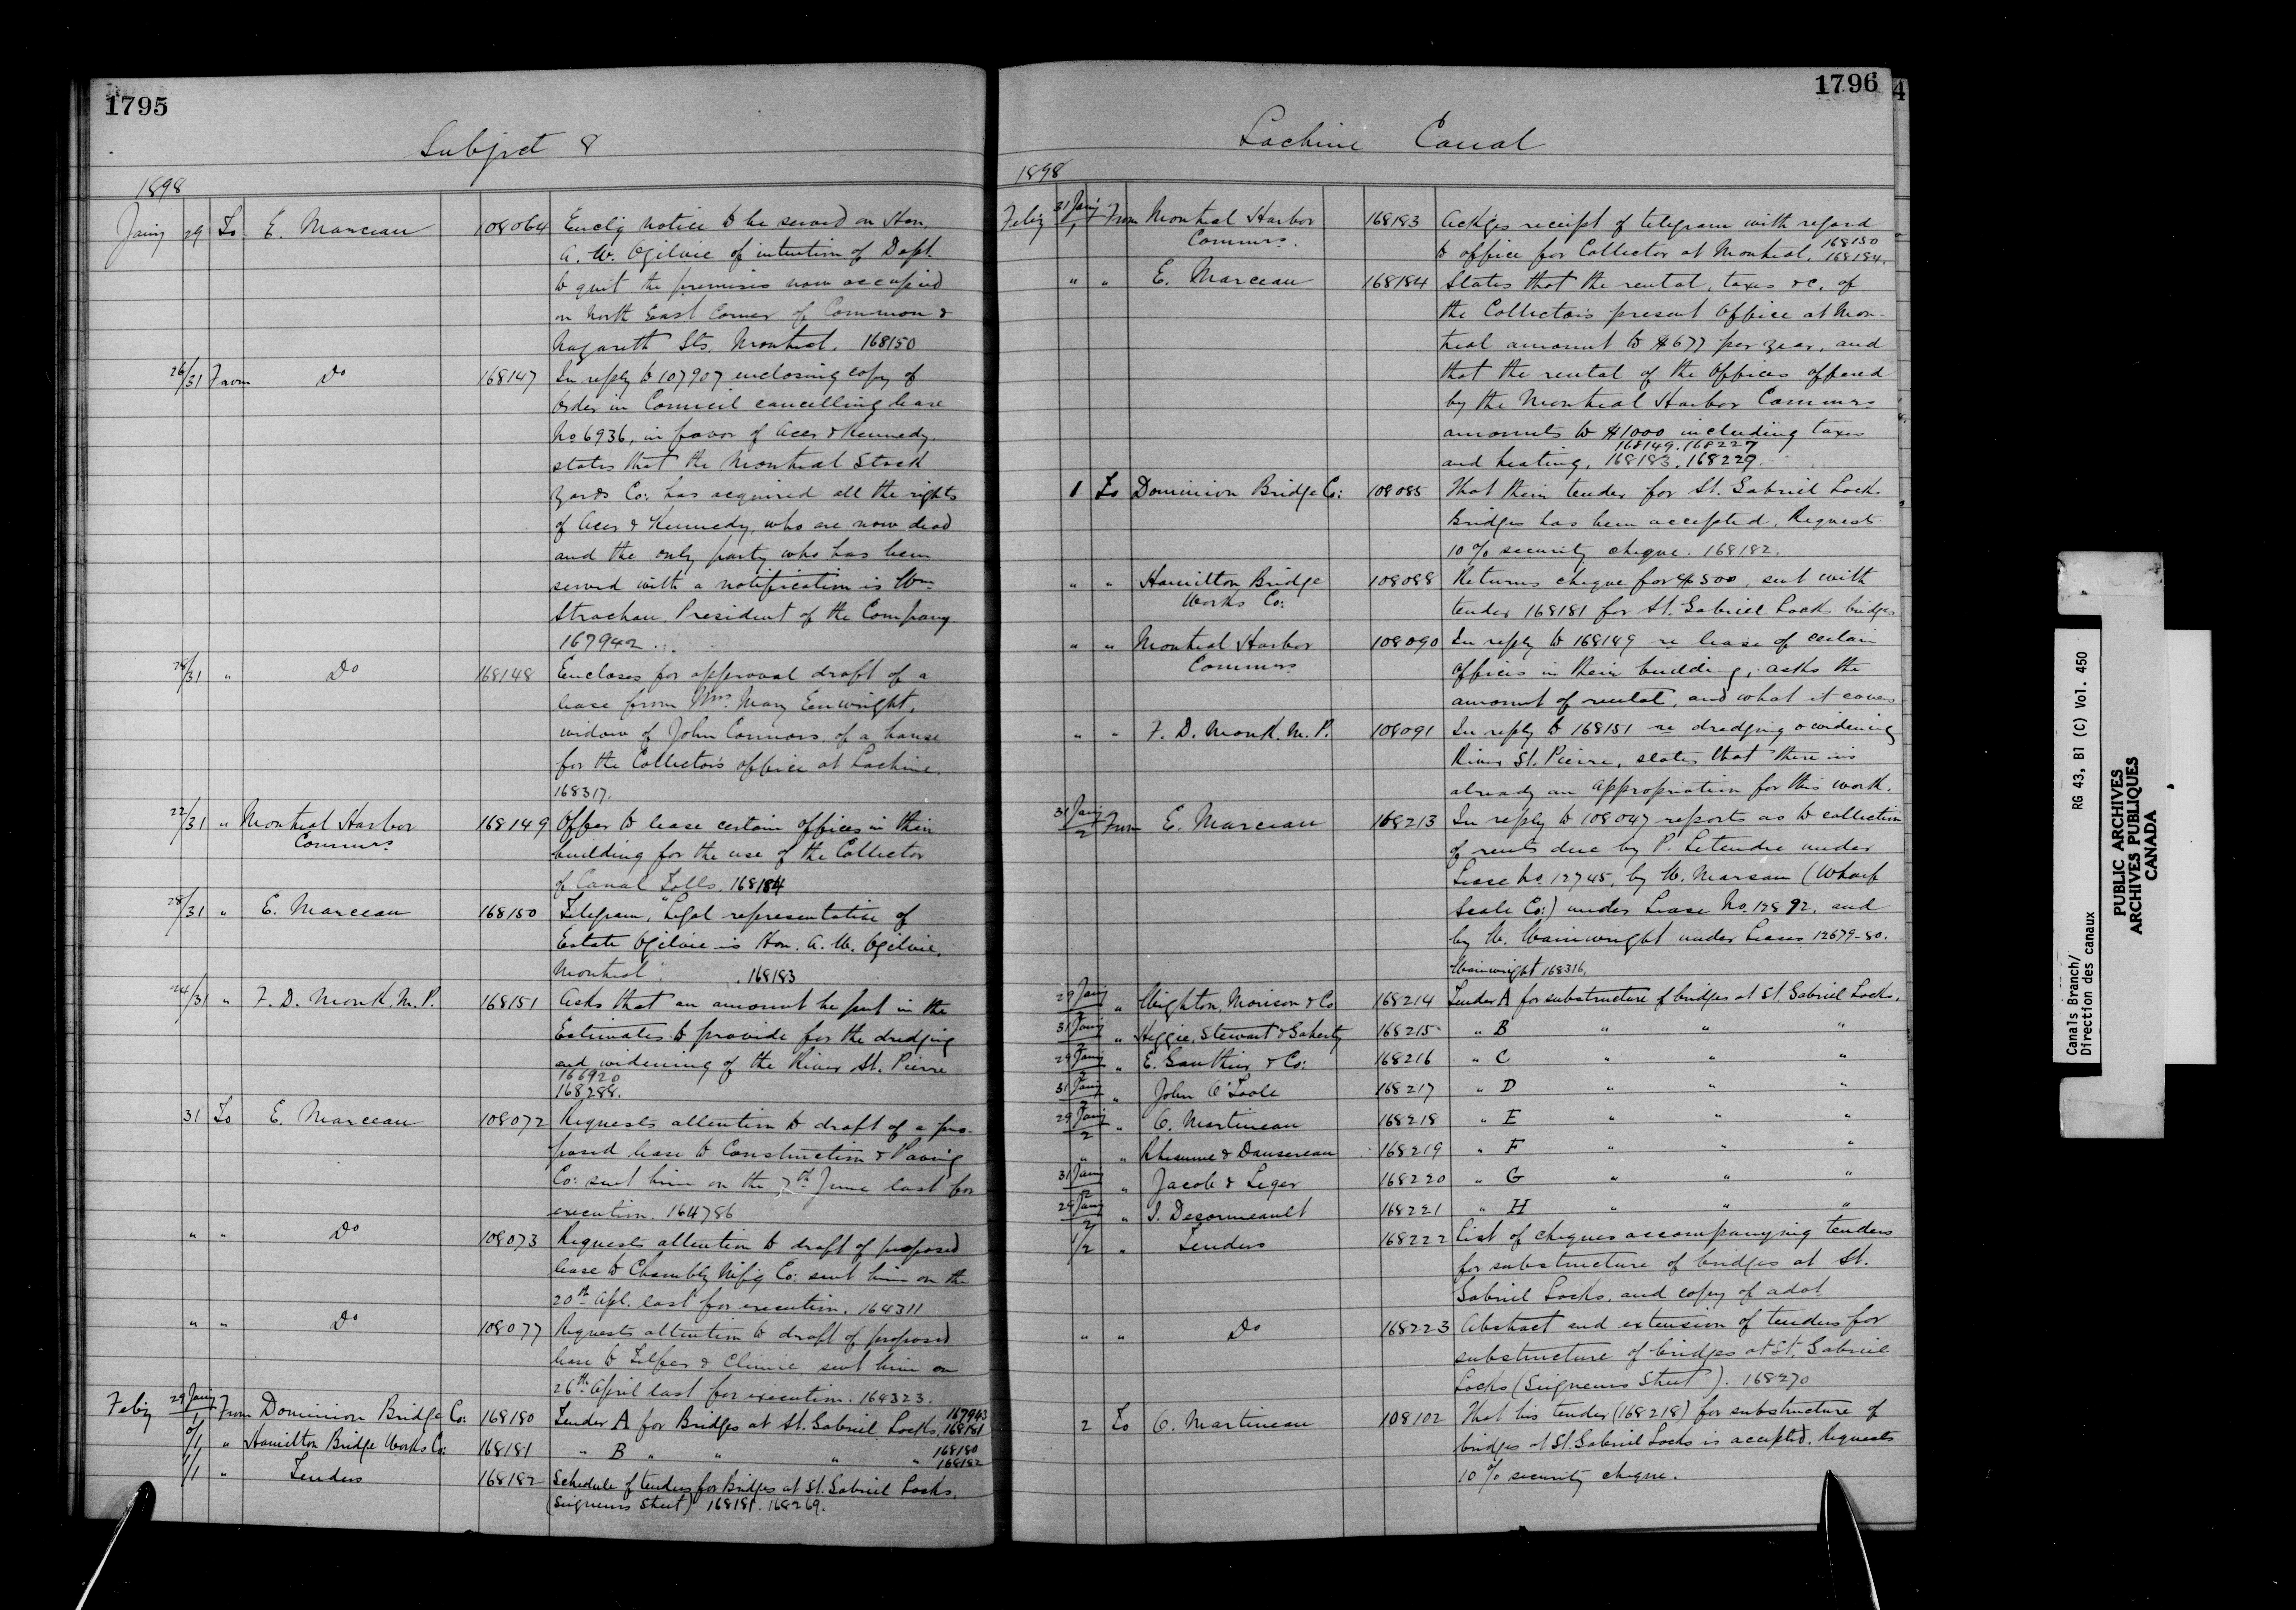 1795
Subject 8
1898
Jany 29 To E. Marceau 108064 Enclg notice to be served on Hon.
A. W. Ogilvie of intention of Dept.
to quit the premises now occupied
on North East Corner of Common &
Nazareth Sts. Montreal. 168150
26/31 From Do 168147 In reply to 107907 enclosing copy of
Order in Council cancelling lease
No 6936, in favor of Acer & Kennedy,
states that the Montreal Stock
Yards Co: has acquired all the rights
of Acer & Kennedy, who are now dead
and the only party who has been
served with a notification is Wm
Strachan President of the Company.
167942
28/31 " Do 168148 Encloses for approval draft of a
lease from Mrs. Mary Enwright,
widow of John Connors, of a house
for the Collector's office at Lachine.
168317.
22/31 " Montreal Harbor 168149 Offer to lease certain offices in their
Commrs. building for the use of the Collector
of Canal Tolls. 168184
28/31 " E. Marceau 168150 Telegram, "Legal representative of
Estate Ogilvie is Hon. A. W. Ogilvie,
Montreal". 168183
24/31 " F. D. Monk. M.P. 168151 Asks that an amount be put in the
Estimates to provide for the dredging
and widening of the River St. Pierre
166920
168288.
31 To E. Marceau 108072 Requests attention to draft of a pro-
posed lease to Construction & Paving
Co: sent him on the 7th June last for
execution. 164786
" " Do 108073 Requests attention to draft of proposed
lease to Chambly Mfg Co: sent him on the
20th Apl. last for execution. 164311
" " Do 108077 Requests attention to draft of proposed
lease to Telfer & Climie sent him on
26th April last for execution. 164323.
Feby 29 Jany/1 From Dominion Bridge Co: 168180 Tender A for Bridges at St. Gabriel Locks. 167943 168181
" Hamilton Bridge Works Co: 168181 " B " " " " 168180 168182
1/1 " Tenders 168182 Schedule of tenders for Bridges at St. Gabriel Locks.
(Seigneurs Street) 168181. 168269.
1796
4
Lachine Canal
1898
Feby 31 Jany/1 From Montreal Harbor 168183 Ackges receipt of telegram with regard
Commrs. to office for Collector at Montreal. 168150 168184.
" " E. Marceau 168184 States that the rental, taxes &c. of
the Collector's present office at Mon-
treal amount to $677 per year, and
that the rental of the offices offered
by the Montreal Harbor Commrs
amounts to $1000 including taxes
and heating. 168149. 168227 168183. 168229.
1 To Dominion Bridge Co: 108085 That their tender for St. Gabriel Locks
Bridges has been accepted. Requests
10% security cheque. 168182.
" " Hamilton Bridge 108088 Returns cheque for $500, sent with
Works Co: tender 168181 for St. Gabriel Locks bridges
" " Montreal Harbor 108090 In reply to 168149 re lease of certain
Commrs offices in their building, asks the
amount of rental, and what it covers
" " F. D. Monk. M.P. 108091 In reply to 168151 re dredging & widening
River St. Pierre, states that there is
already an appropriation for this work.
31 Jany/2 From E. Marceau 168213 In reply to 108047 reports as to collection
of rents due by P. Letendre under
Lease No. 12745, by W. Marsan (Wharf
Scale Co:) under Lease No. 12892, and
by W. Wainwright under Leases 12679-80.
Wainwright 168316.
29 Jany/2 " Wighton, Morison & Co 168214 Tender A for substructure of bridges at St. Gabriel Locks.
31 Jany/2 " Heggie, Stewart & Gaherty 168215 " B " " "
29 Jany/2 " E. Gauthier & Co: 168216 " C " " "
31 Jany/2 " John O'Toole 168217 " D " " "
29 Jany/2 " O. Martineau 168218 " E " " "
" " Rheaume & Dansereau 168219 " F " " "
31 Jany/2 " Jacob & Leger 168220 " G " " "
29 Jany/2 " J. Desormeault 168221 " H " " "
1/2 " Tenders 168222 List of cheques accompanying tenders
for substructure of bridges at St.
Gabriel Locks, and copy of advt.
" " Do 168223 Abstract and extension of tenders for
substructure of bridges at St. Gabriel
Locks (Seigneurs Street). 168270
2 To O. Martineau 108102 That his tender (168218) for substructure of
bridges at St. Gabriel Locks is accepted. Requests
10% security cheque.
Canals Branch/ RG 43, B1 (C) Vol. 450
Direction des canaux
PUBLIC ARCHIVES
ARCHIVES PUBLIQUES
CANADA